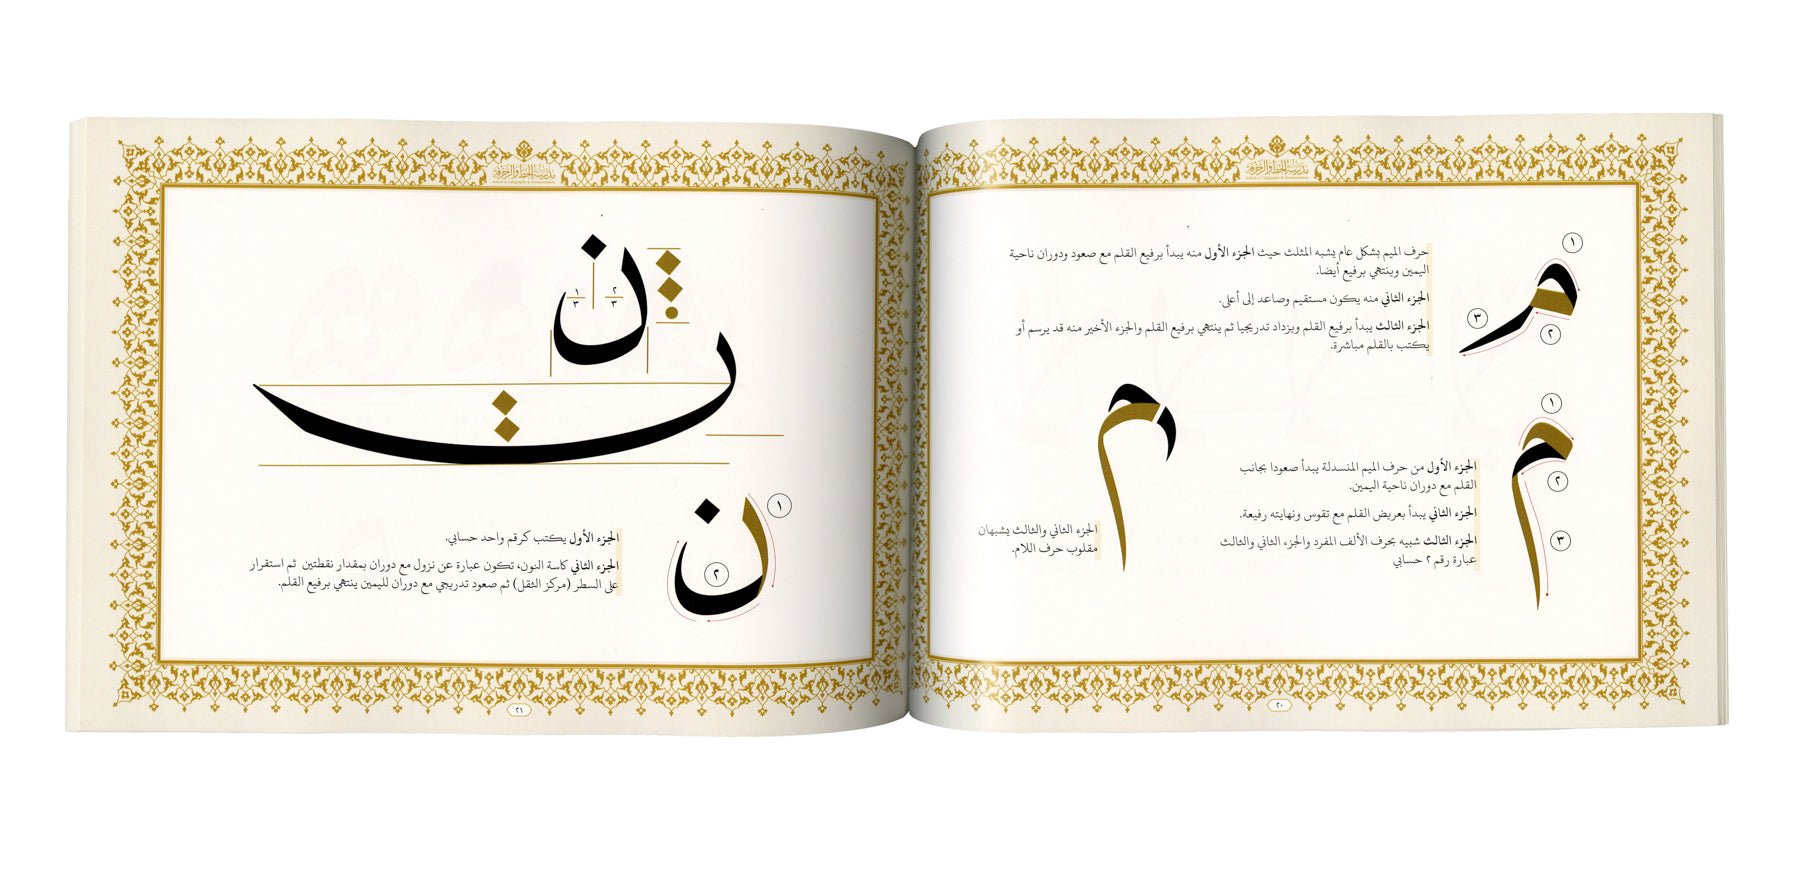 مدرسة الخط والزخرفة
١
حرف الميم بشكل عام يشبه المثلث حيث الجزء الأول منه يبدأ برفيع القلم مع صعود ودوران ناحية
اليمين وينتهي برفيع أيضا.
الجزء الثاني منه يكون مستقيم وصاعد إلى أعلى.
الجزء الثالث يبدأ برفيع القلم ويزداد تدريجيا ثم ينتهي برفيع القلم والجزء الأخير منه قد يرسم أو
يكتب بالقلم مباشرة.
م
٣
٢
١
م
٢
٣
الجزء الأول من حرف الميم المنسدلة يبدأ صعودا بجانب
القلم مع دوران ناحية اليمين.
الجزء الثاني يبدأ بعريض القلم مع تقوس ونهايته رفيعة.
الجزء الثالث شبيه بحرف الألف المفرد والجزء الثاني والثالث
عبارة رقم ٢ حسابي
م
الجزء الثاني والثالث يشبهان
مقلوب حرف اللام.
٢٠
مدرسة الخط والزخرفة
ن
٢
٣
١
٣
ن
ن
١
٢
الجزء الأول يكتب كرقم واحد حسابي.
الجزء الثاني كاسة النون، تكون عبارة عن نزول مع دوران بمقدار نقطتين ثم استقرار
على السطر (مركز الثقل) ثم صعود تدريجي مع دوران لليمين ينتهي برفيع القلم.
٢١